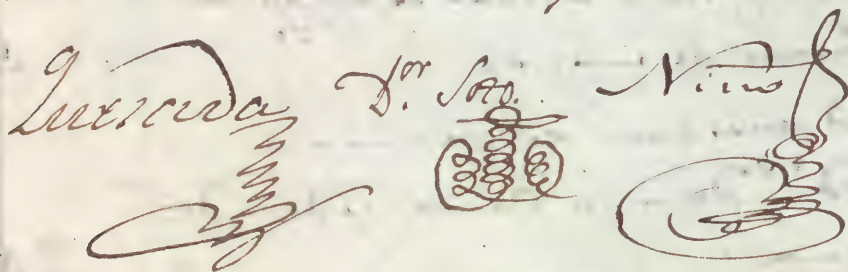 Quexada Dor. Soto. Nino